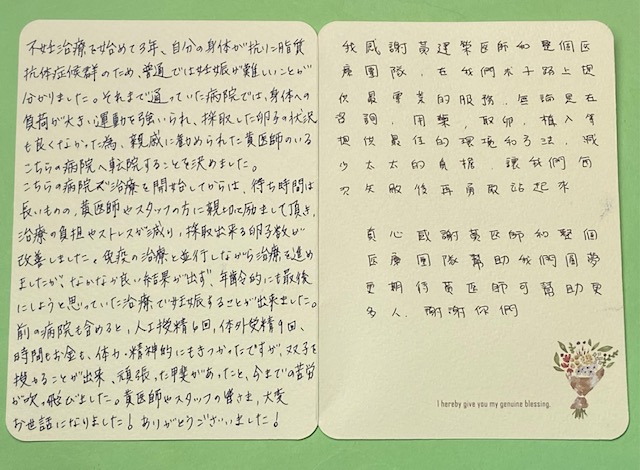 不妊治療を始めて3年、自分の身体が抗リン脂質
抗体症候群のため、普通では妊娠が難しいことが
分かりました。それまで通っていた病院では、身体への
負荷が大きい運動を強いられ、採取した卵子の状況
も良くなかった為、親戚に勧められた黄医師のいる
こちらの病院へ転院することを決めました。
こちらの病院で治療を開始してからは、待ち時間は
長いものの、黄医師やスタッフの方に親切に励まして頂き、
治療の負担やストレスが減り、採取出来る卵子数が
改善しました。免疫の治療と並行しながら治療を進め
ましたが、なかなか良い結果が出ず、年齢的にも最後
にしようと思っていた治療で妊娠することが出来ました。
前の病院も含めると、人工授精6回、体外受精9回、
時間もお金も、体力・精神的にもきつかったですが、双子を
授かることが出来、頑張った甲斐があったと、今までの苦労
が吹っ飛びました。黄医師やスタッフの皆さま、大変
お世話になりました!ありがとうございました!
我感謝黃建榮医師和整個医
療團隊，在我們求子路上提
供最專業的服務，無論是在
咨詢，用藥，取卵，植入等
提供最佳的環境和方法，減
少太太的負担，讓我們每
次失敗後再勇敢站起來
真心感謝黃医師和整個
医療團隊幫助我們圓夢
更期待黃医師可幫助更
多人．謝謝你們
I hereby give you my genuine blessing.